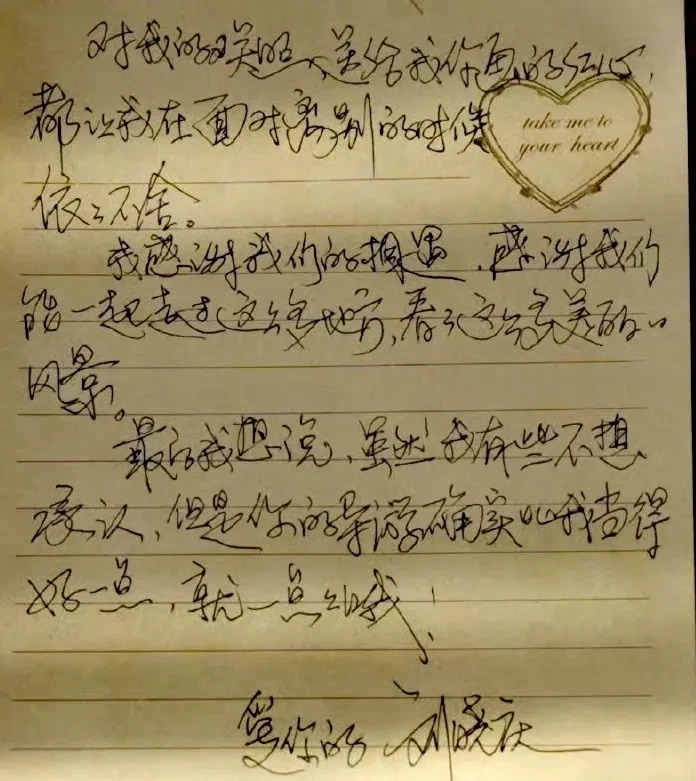 对我的呵照、送给我你画的红心,
都让我在面对离别的时候
take me to
your heart
依依不舍。
我感谢我们的相遇,感谢我们
能一起走过这么多地方,看过这么多美的
风景。
最后我想说,虽然我有些不想
承认,但是你的导游确实比我当得
好一点,就一点点哦!
爱你的 刘晓庆